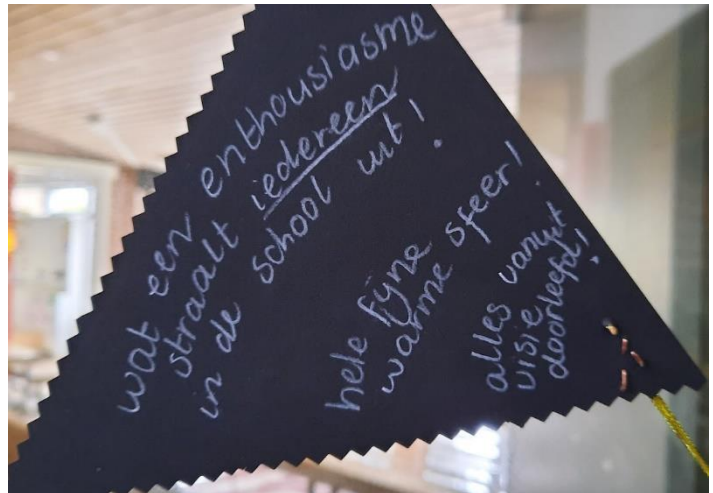 wat een enthousiasme
straalt iedereen
in de school uit!
hele fijne
warme sfeer!
alles vanuit
visie
doorleefd!